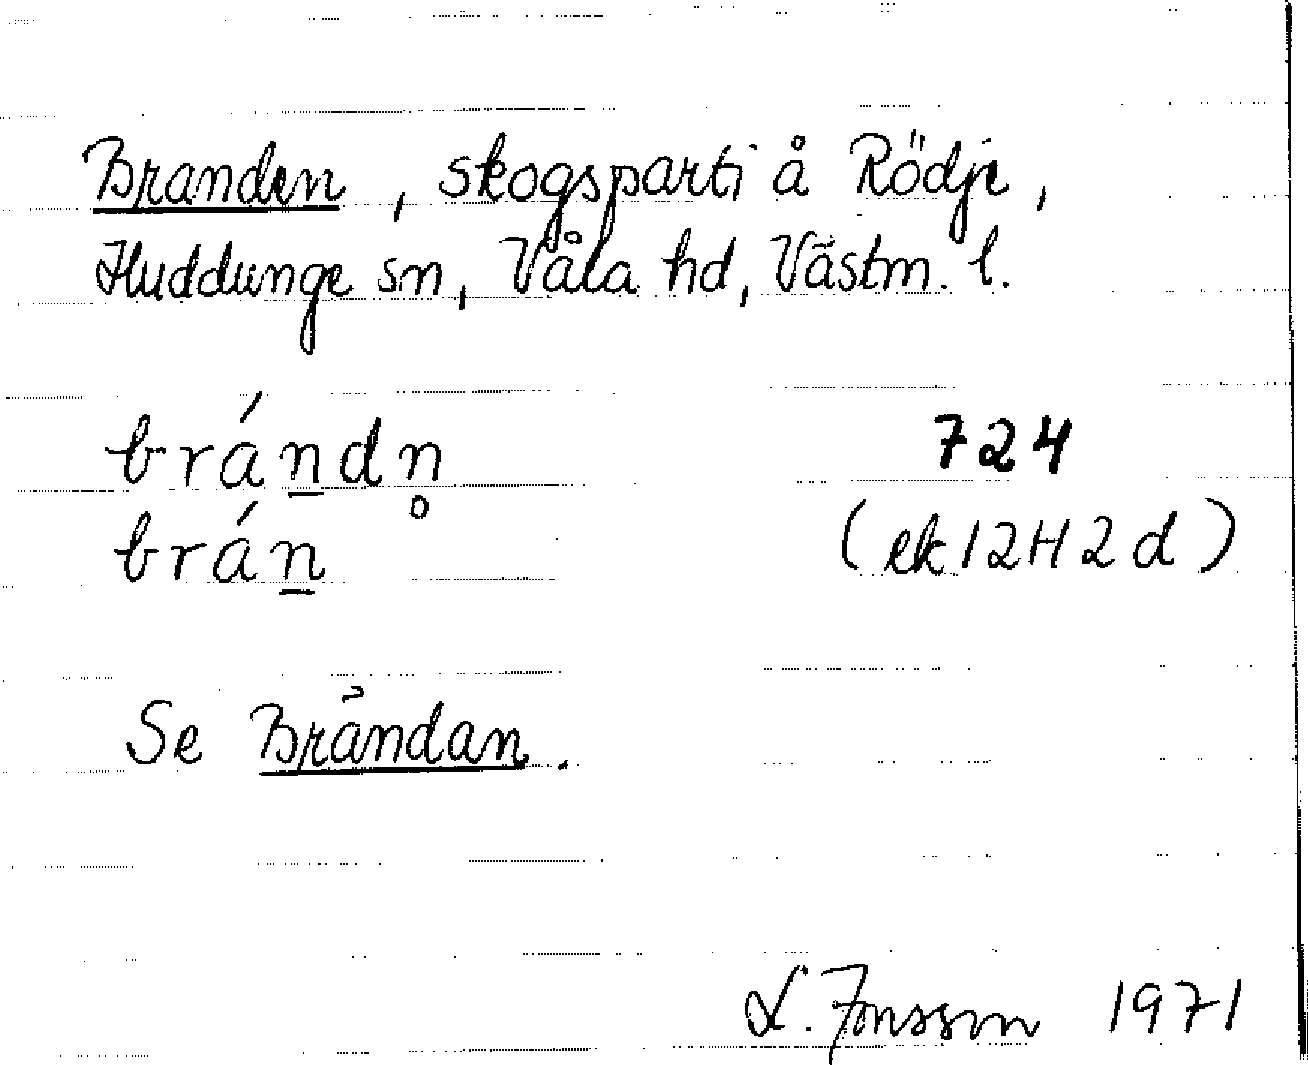 Branden, skogsparti å Rödje,
Huddunge sn, Våla hd, Västm. l.
brán̲dn̥ 724
brán̲ (ek 12H2d)
Se Brändan.
L. Jonsson 1971